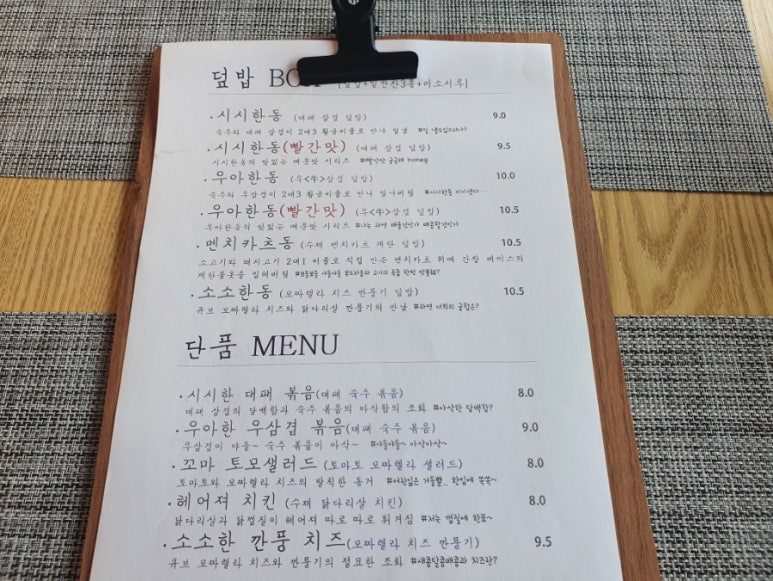 덮밥 BO
·시시한동 (대패 삼겹 덮밥) 9.0
숙주와 대패 삼겹이 2대3 황금비율로 만나
·시시한동(빨간맛) (대패 삼겹 덮밥) 9.5
시시한동의 맛있는 매운맛 시리즈 honey
·우아한동 (우<牛>삼겹 덮밥) 10.0
숙주와 우삼겹이 2대3 황금비율로 만나
·우아한동(빨간맛) (우<牛>삼겹 덮밥) 10.5
우아한동의 맛있는 매운맛 시리즈
·멘치카츠동 (수제 멘치카츠 계란 덮밥) 10.5
소고기와 돼지고기 2대1 비율로 직접 만든 멘치카츠 위에 간장 베이스의
·소소한동 (모짜렐라 치즈 깐풍기 덮밥) 10.5
큐브 모짜렐라 치즈와 닭다리살 깐풍기의 만남 #과연 너희의 궁합은?
단품 MENU
·시시한 대패 볶음(대패 숙주 볶음) 8.0
대패 삼겹의 담백함과 숙주 볶음의 아삭함의 조화 #아삭한 담백함?
·우아한 우삼겹 볶음(대패 숙주 볶음) 9.0
우삼겹이 야들~ 숙주 볶음이 아삭~ #야들야들~ 아삭아삭~
·꼬마 토모샐러드(토마토 모짜렐라 샐러드) 8.0
토마토와 모짜렐라 치즈의 발칙한 동거
·헤어져 치킨 (수제 닭다리살 치킨) 8.0
닭다리살과 닭껍질이 헤어져 따로 따로 튀겨짐 #저는 껍질에 한표~
·소소한 깐풍 치즈(모짜렐라 치즈 깐풍기) 9.5
큐브 모짜렐라 치즈와 깐풍기의 절묘한 조화 #새콤달콤매콤과 치즈란?